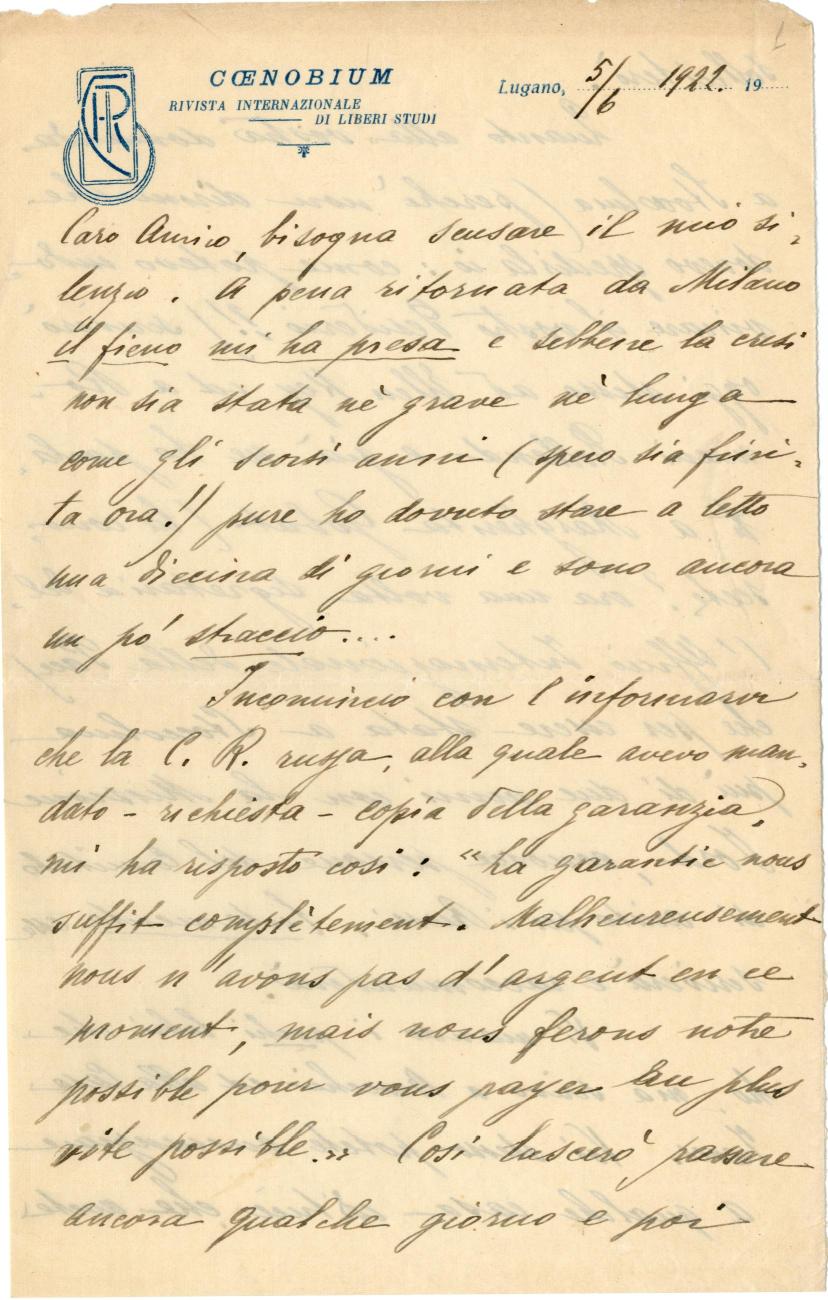 CŒNOBIUM
RIVISTA INTERNAZIONALE
DI LIBERI STUDI
Lugano, 5/6 1922. 19
1
Caro Amico, bisogna scusare il mio si-
lenzio. A pena ritornata da Milano
il fieno mi ha presa e sebbene la crisi
non sia stata nè grave nè lunga
come gli scorsi anni (spero sia fini-
ta ora!) pure ho dovuto stare a letto
una diecina di giorni e sono ancora
un pò' straccio....
Incomincio con l'informarvi
che la C. R. russa, alla quale avevo man-
dato - richiesta - copia della garanzia,
mi ha risposto così: "La garantie nous
suffit complètement. Malheureusement
nous n'avons pas d'argent en ce
moment, mais nous ferons notre
possible pour vous payer au plus
vite possible." Così lascerò passare
ancora qualche giorno e poi